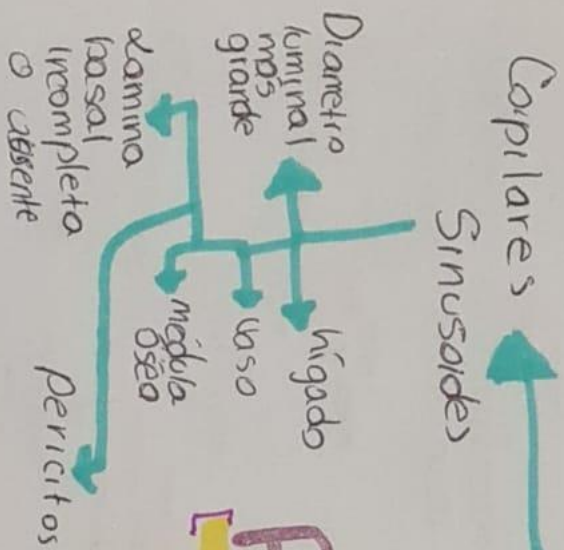 Capilares
Sinusoides
Diametro
luminal
más
grande
hígado
vaso
médula
Oséo
Lamina
basal
incompleta
o ausente
pericitos